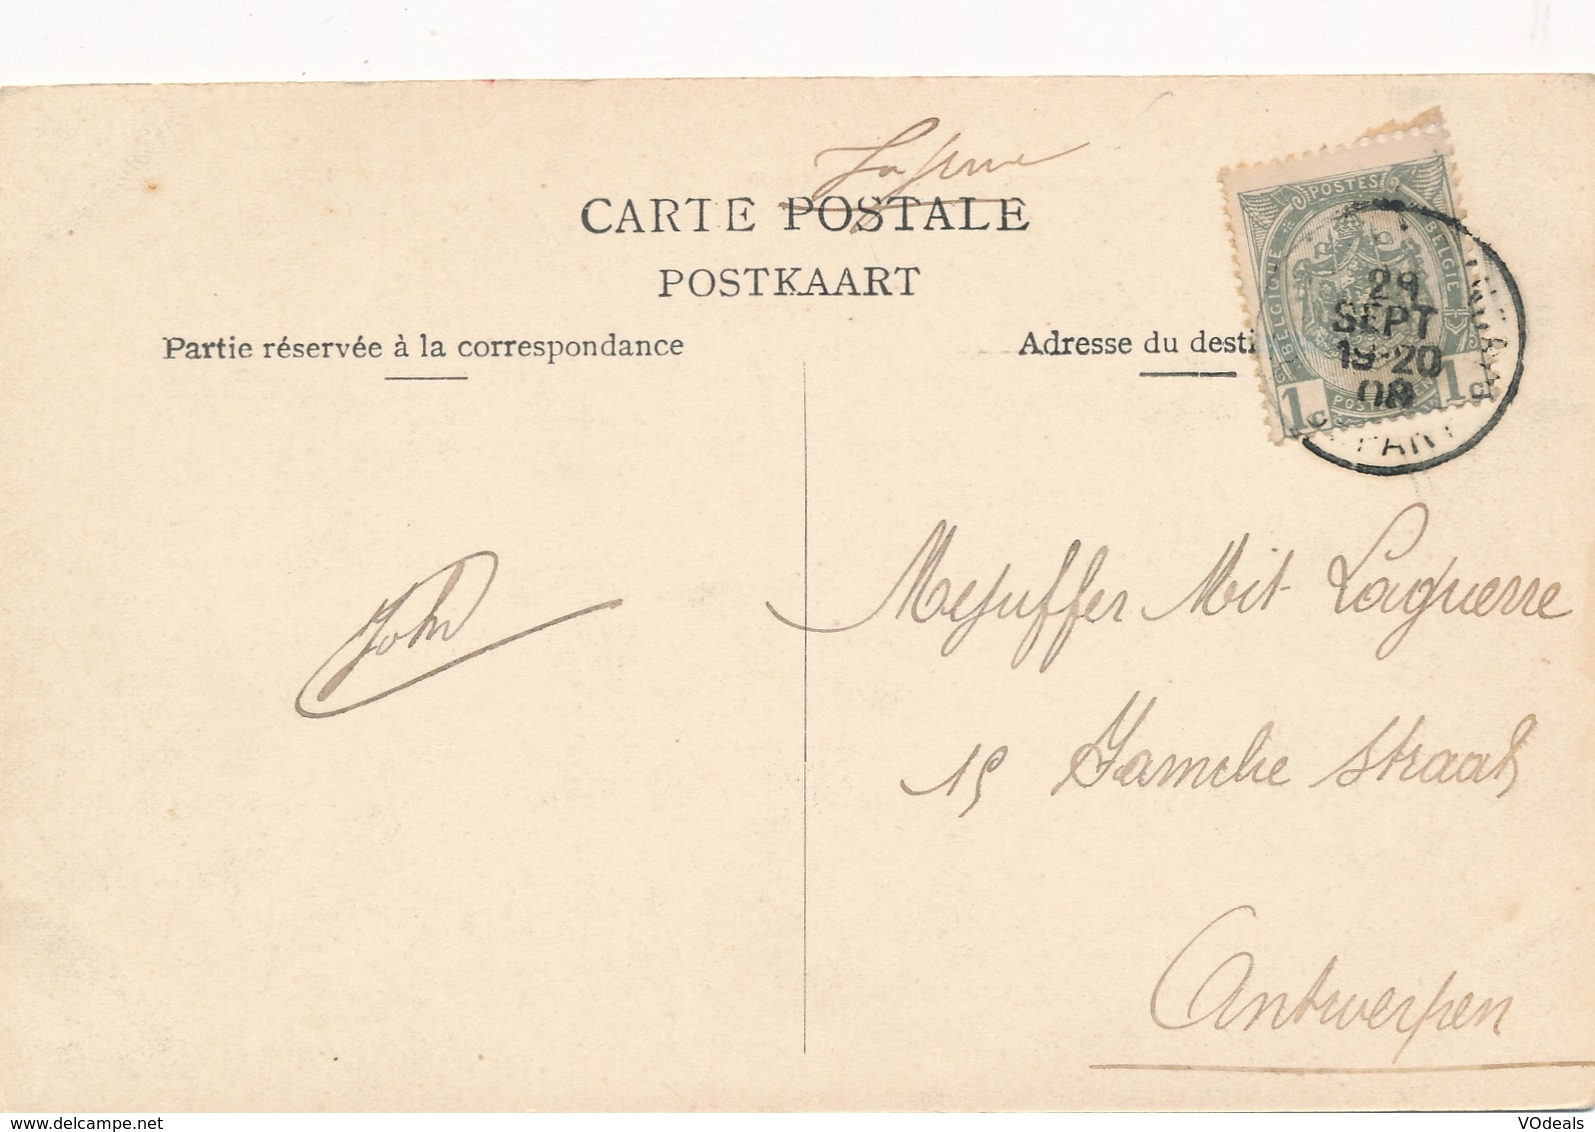 CARTE POSTALE
POSTKAART
Partie réservée à la correspondance
Adresse du desti
POSTES
BELGIQUE
BELGIE
1c
1c
29
SEPT
19-20
08
John
Mejuffer Mit Laguerre
15 straat
Antwerpen
www.delcampe.net
VOdeals